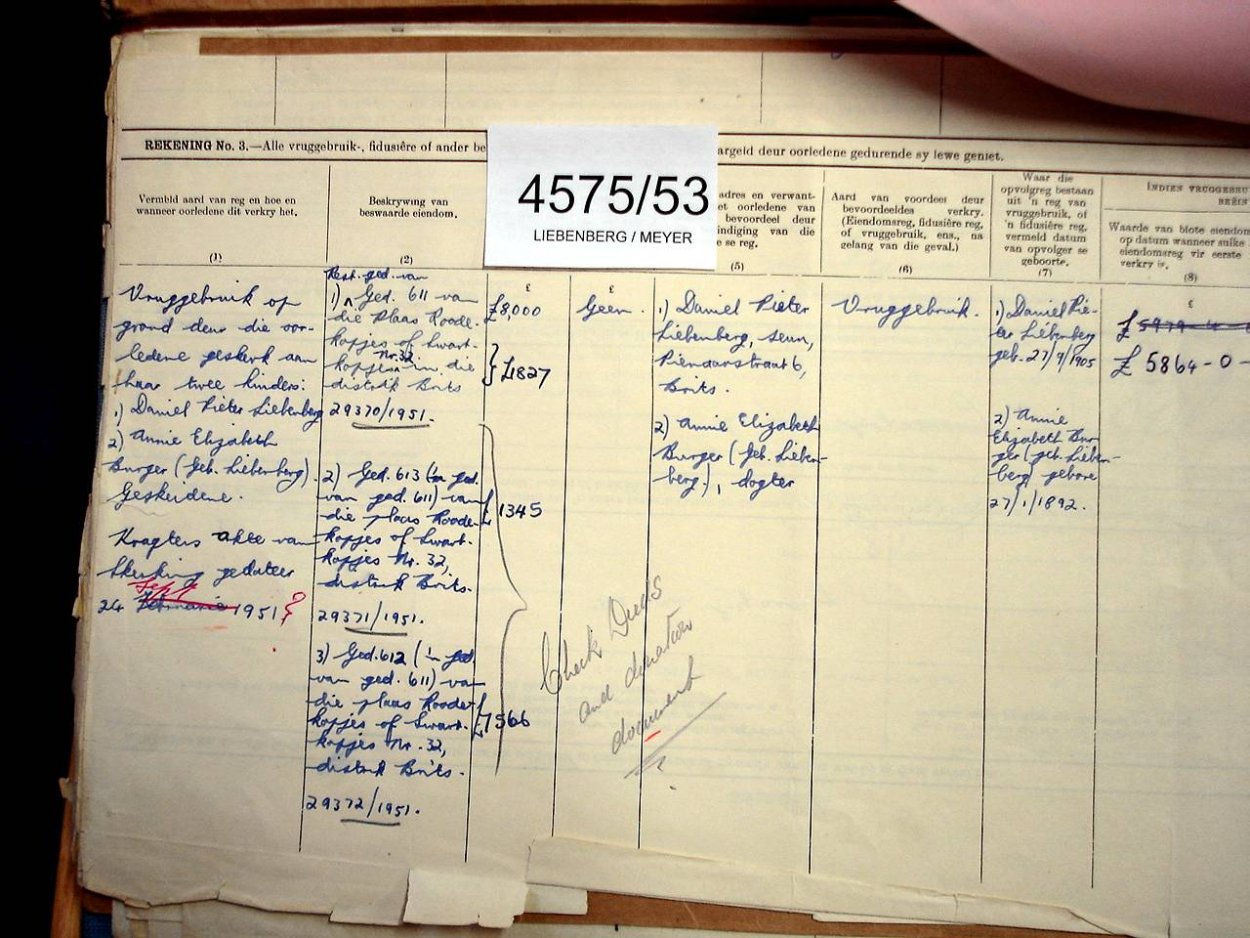 REKENING No. 3.—Alle vruggebruik-, fidusiêre of ander be
argeld deur oorledene gedurende sy lewe geniet.
4575/53
LIEBENBERG / MEYER
Vermeld aard van reg en hoe en
wanneer oorledene dit verkry het.
(1)
Beskrywing van
beswaarde eiendom.
(2)
adres en verwant-
et oorledene van
bevoordeel deur
indiging van die
e se reg.
(5)
Aard van voordeel deur
bevoordeeldes verkry.
(Eiendomsreg, fidusiêre reg,
of vruggebruik, ens., na
gelang van die geval.)
(6)
Waar die
opvolgreg bestaan
uit 'n reg van
vruggebruik, of
'n fidusiêre reg,
vermeld datum
van opvolger se
geboorte.
(7)
INDIEN VRUGGEBRU
Waarde van blote eiendom
op datum wanneer sulke
eiendomsreg vir eerste
verkry is.
(8)
Vruggebruik op
grond deur die oor-
ledene geskenk aan
haar twee kinders:
1) Daniel Pieter Liebenberg
2) Annie Elizabeth
Burger (Geb. Liebenberg).
Geskeidene.
Kragtens akte van
skenking gedateer
Sept
24 Februarie 1951 ?
Rest. ged. van
1) Ged. 611 van
die plaas Roode-
kopjes of Swart-
kopjes Nr. 32 in die
distrik Brits
29370/1951.
2) Ged. 613 ('n ged.
van ged. 611) van
die plaas Roode-
kopjes of Swart-
kopjes Nr. 32,
distrik Brits.
29371/1951.
3) Ged. 612 ('n ged.
van ged. 611) van
die plaas Roode-
kopjes of Swart-
kopjes Nr. 32,
distrik Brits.
29372/1951.
£
£8,000
£1827
1345
1566
£
Geen.
1) Daniel Pieter
Liebenberg, seun,
Pienaarstraat 6,
Brits.
2) Annie Elizabeth
Burger (Geb. Lieben-
berg.), dogter
Vruggebruik.
1) Daniel Pie-
ter Liebenberg
geb. 27/9/1905
2) Annie
Elizabeth Bur-
ger (geb. Lieben-
berg) gebore
27/1/1892.
£
£
£ 5864-0-
Check Deeds
and donation
document